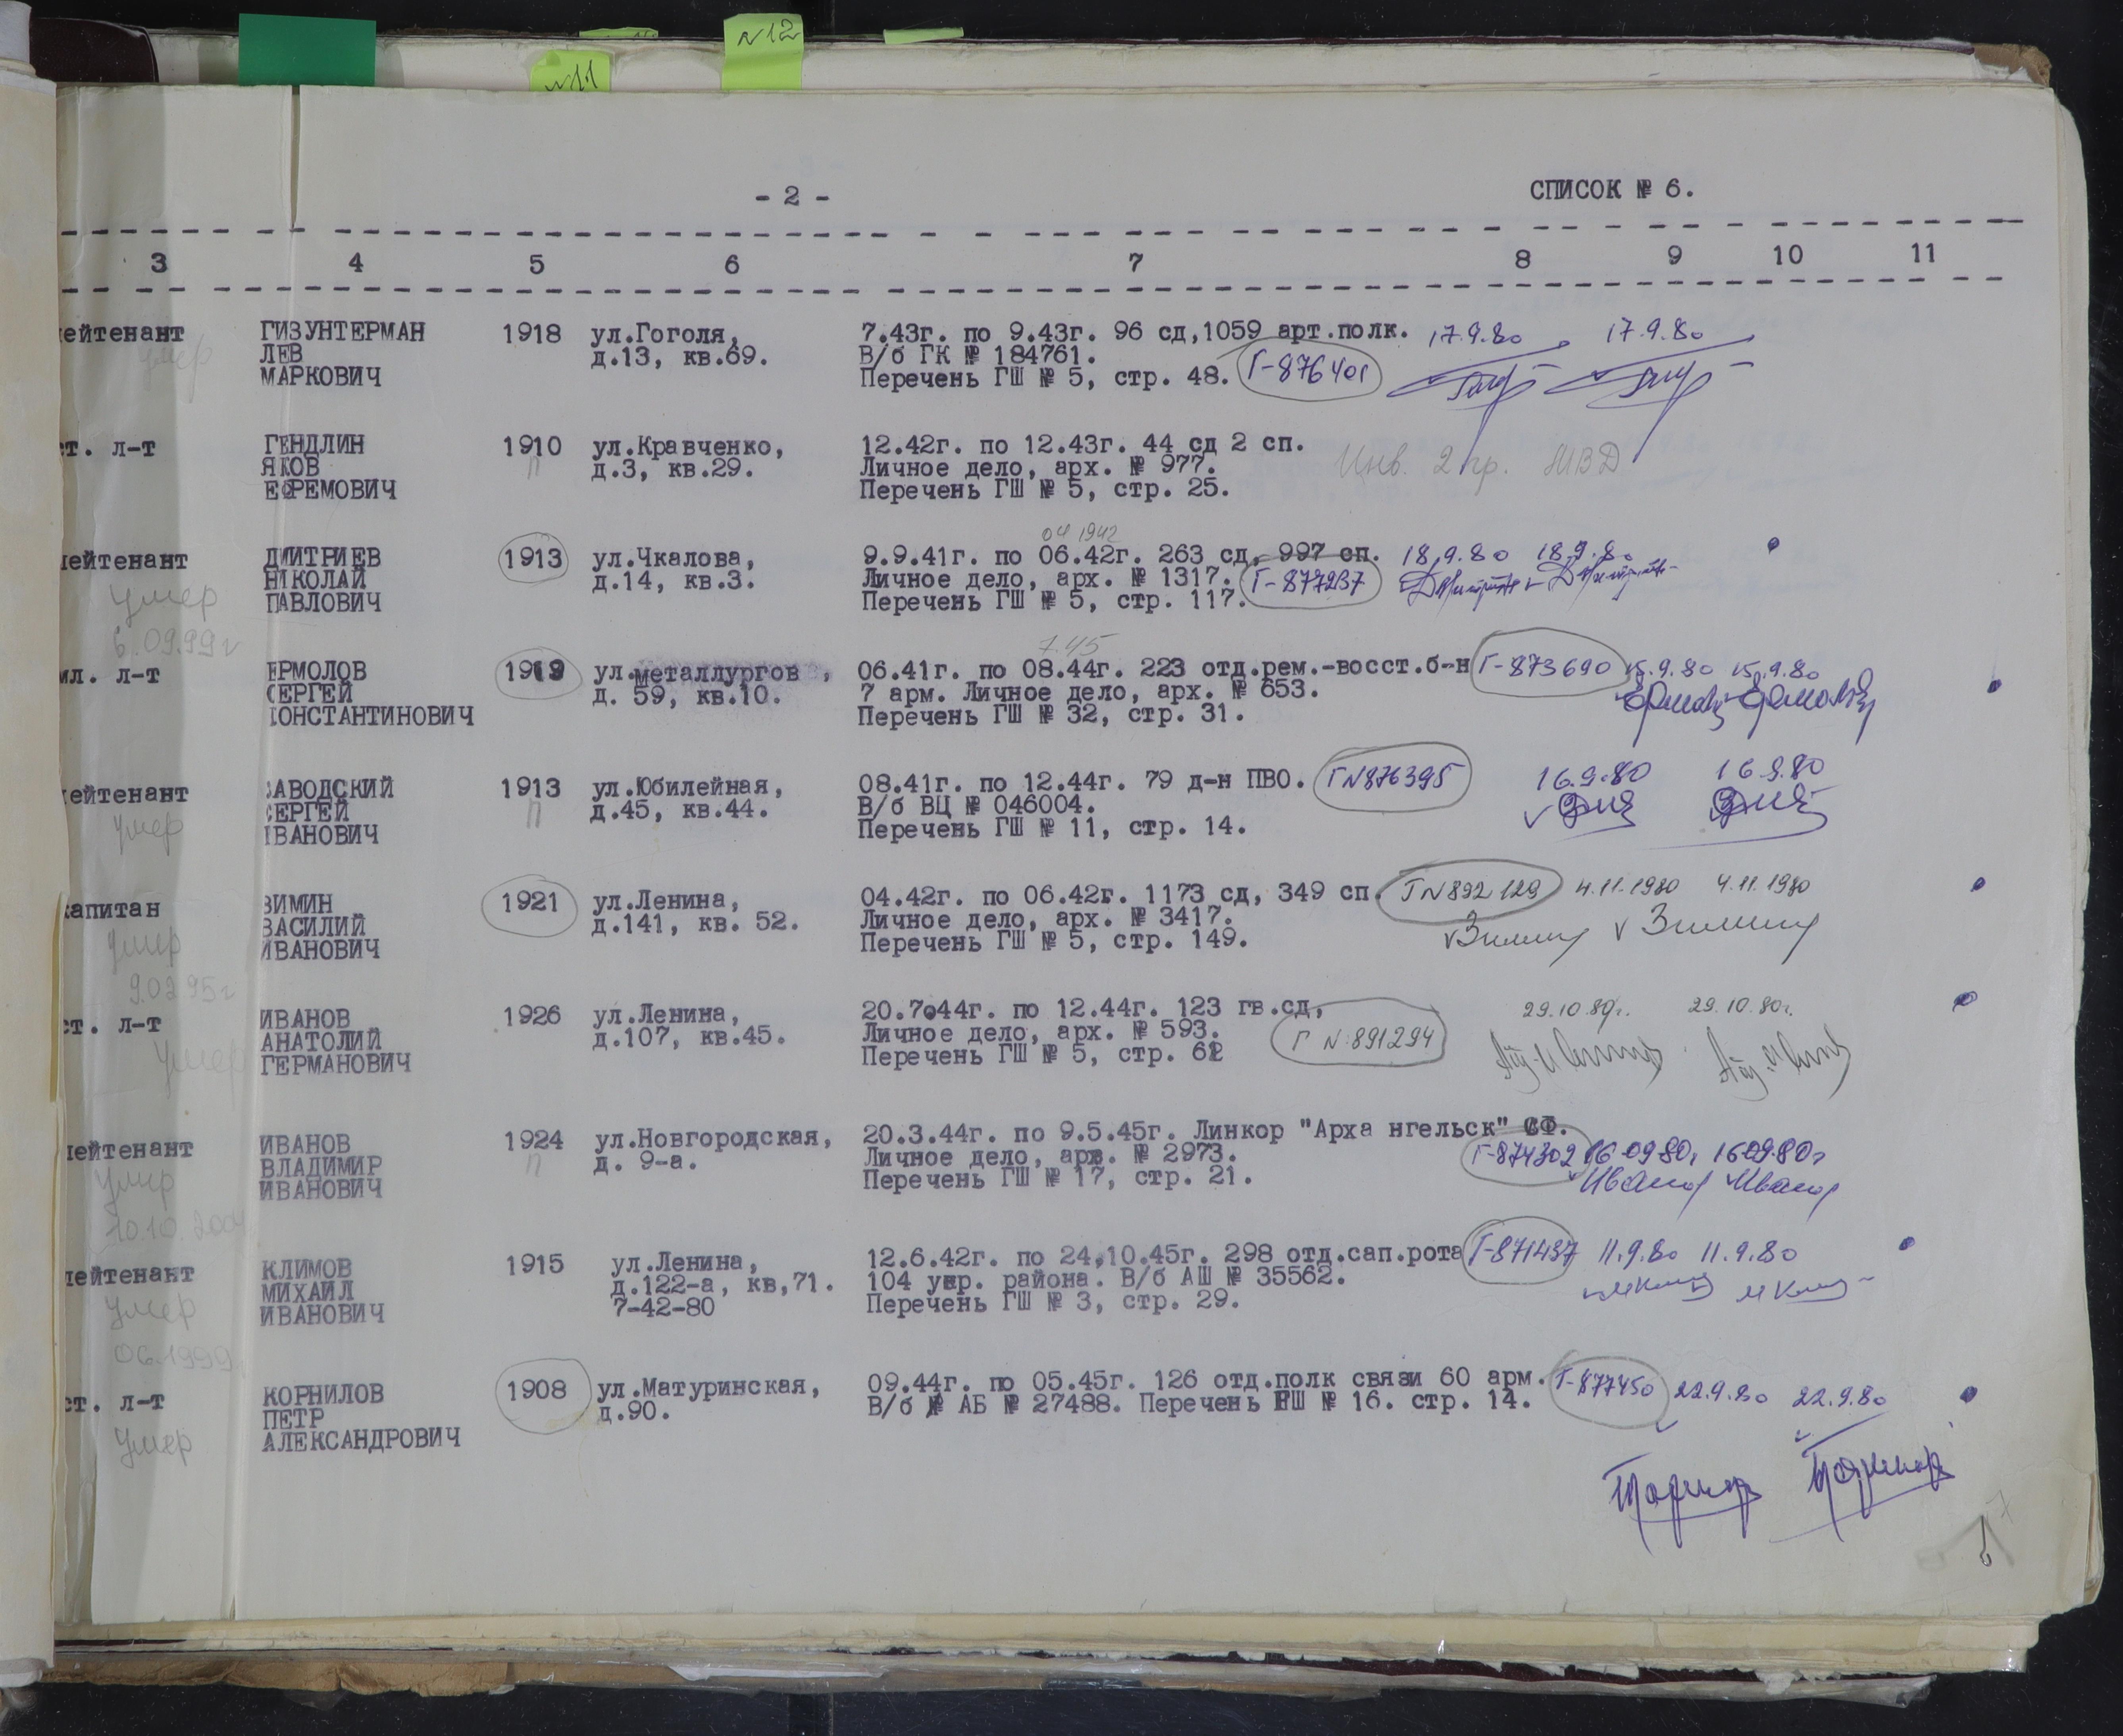 N11
N12
- 2 -
СПИСОК № 6.
3 4 5 6 7 8 9 10 11
лейтенант ГИЗУНТЕРМАН 1918 ул.Гоголя, 7.43г. по 9.43г. 96 сд,1059 арт.полк. 17.9.80 17.9.80
умер ЛЕВ д.13, кв.69. В/б ГК № 184761.
МАРКОВИЧ Перечень ГШ № 5, стр. 48. Г-876401
ст. л-т ГЕНДЛИН 1910 ул.Кравченко, 12.42г. по 12.43г. 44 сд 2 сп.
ЯКОВ п д.3, кв.29. Личное дело, арх. № 977. Инв. 2 гр. МВД
ЕФРЕМОВИЧ Перечень ГШ № 5, стр. 25.
04 1942
лейтенант ДМИТРИЕВ 1913 ул.Чкалова, 9.9.41г. по 06.42г. 263 сд, 997 сп. 18.9.80 18.9.80
умер НИКОЛАЙ д.14, кв.3. Личное дело, арх. № 1317. Г-877237
ПАВЛОВИЧ Перечень ГШ № 5, стр. 117.
6.09.99г 7.45
мл. л-т ЕРМОЛОВ 1919 ул.металлургов, 06.41г. по 08.44г. 223 отд.рем.-восст.б-н Г-873690 15.9.80 15.9.80
СЕРГЕЙ д. 59, кв.10. 7 арм. Личное дело, арх. № 653.
КОНСТАНТИНОВИЧ Перечень ГШ № 32, стр. 31.
лейтенант ЗАВОДСКИЙ 1913 ул.Юбилейная, 08.41г. по 12.44г. 79 д-н ПВО. Г N876395 16.9.80 16.9.80
умер СЕРГЕЙ п д.45, кв.44. В/б ВЦ № 046004.
ИВАНОВИЧ Перечень ГШ № 11, стр. 14.
капитан ЗИМИН 1921 ул.Ленина, 04.42г. по 06.42г. 1173 сд, 349 сп. Г N892129 4.11.1980 4.11.1980
умер ВАСИЛИЙ д.141, кв. 52. Личное дело, арх. № 3417.
ИВАНОВИЧ Перечень ГШ № 5, стр. 149.
9.02.95г
ст. л-т ИВАНОВ 1926 ул.Ленина, 20.7.44г. по 12.44г. 123 гв.сд, 29.10.80г. 29.10.80г.
умер АНАТОЛИЙ д.107, кв.45. Личное дело, арх. № 593. Г N 891294
ГЕРМАНОВИЧ Перечень ГШ № 5, стр. 62
лейтенант ИВАНОВ 1924 ул.Новгородская, 20.3.44г. по 9.5.45г. Линкор "Арха нгельск" СФ.
умер ВЛАДИМИР п д. 9-а. Личное дело, арх. № 2973. Г-874302 16.09.80г 16.09.80г
ИВАНОВИЧ Перечень ГШ № 17, стр. 21. Иванов Иванов
10.10.2004
лейтенант КЛИМОВ 1915 ул.Ленина, 12.6.42г. по 24.10.45г. 298 отд.сап.рота Г-871437 11.9.80 11.9.80
умер МИХАИЛ д.122-а, кв,71. 104 укр. района. В/б АШ № 35562.
ИВАНОВИЧ 7-42-80 Перечень ГШ № 3, стр. 29.
06.1999
ст. л-т КОРНИЛОВ 1908 ул.Матуринская, 09.44г. по 05.45г. 126 отд.полк связи 60 арм. Г-877450 22.9.80 22.9.80
ПЕТР д.90. В/б № АБ № 27488. Перечень ГШ № 16. стр. 14.
умер АЛЕКСАНДРОВИЧ